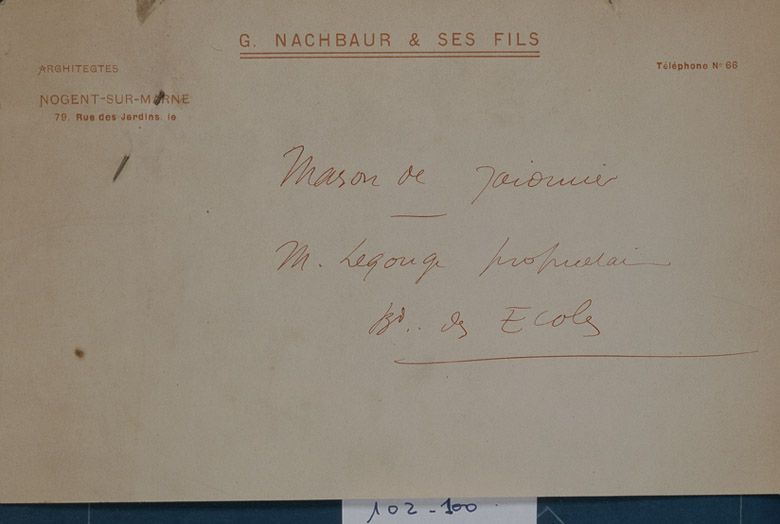 G. NACHBAUR & SES FILS
ARCHITECTES
Téléphone Nº 66
NOGENT-SUR-MARNE
79, Rue des Jardins, 79
Maison de
M. Legouge propriétaire
Bd. des Ecoles
102-100